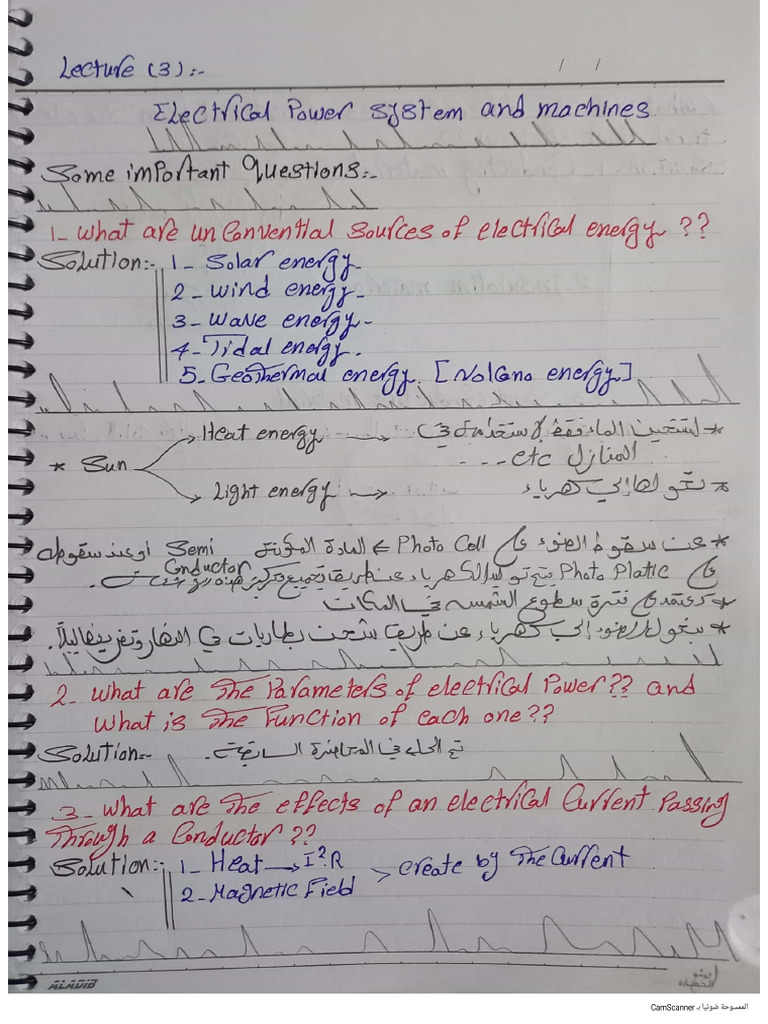 Lecture (3):-
/ /
Electrical Power system and machines
Some important Questions:-
1- What are unconvential sources of electrical energy ??
Solution:- 1- Solar energy
2- Wind energy-
3- Wave energy-
4- Tidal energy.
5- Geothermal energy. [Volcano energy]
* Sun
Heat energy → * لتسخين الماء فقط لاستخدامه في
المنازل etc ...
Light energy → * نحولها إلى كهرباء
* عن سقوط الضوء على Photo Cell ← المادة المكونة Semi Conductor أو عند سقوطه
على Photo Platic يتم توليد الكهرباء عن طريق تجميع وتركيز هذه
* تعتمد على فترة سطوع الشمسه في المكان
* يتحول الضوء إلى كهرباء عن طريق شحن بطاريات في النهار وتفريغها ليلاً.
2- What are The Parameters of electrical Power?? and
What is The Function of each one??
Solution:- تم الحل في المحاضرة السابقة.
3- What are The effects of an electrical Current Passing
Through a Conductor??
Solution:- 1- Heat → I².R
2- Magnetic Field
> create by The Current
ALADIB
الممسوحة ضوئيا بـ CamScanner